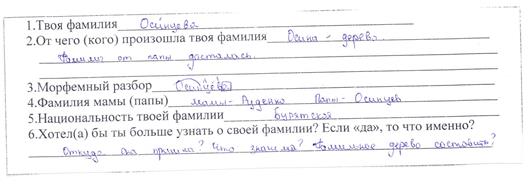 1.Твоя фамилия Осинцева
2.От чего (кого) произошла твоя фамилия Осина - дерево.
Фамилия от папы досталась.
3.Морфемный разбор Осинцева
4.Фамилия мамы (папы) мамы- Руденко Папы- Осинцев
5.Национальность твоей фамилии бурятская
6.Хотел(а) бы ты больше узнать о своей фамилии? Если «да», то что именно?
Откуда она пришла? Что значила? Фамильное дерево составить?